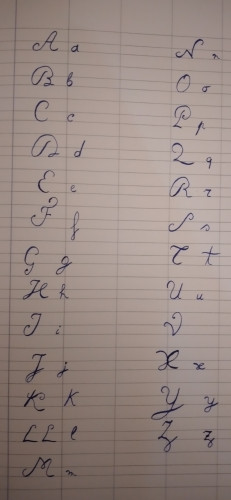 A a
B b
C c
D d
E e
F f
G g
H h
I i
J j
K k
LL l
M m
N n
O o
P p
Q q
R r
S s
T t
U u
V
X x
Y y
Z z